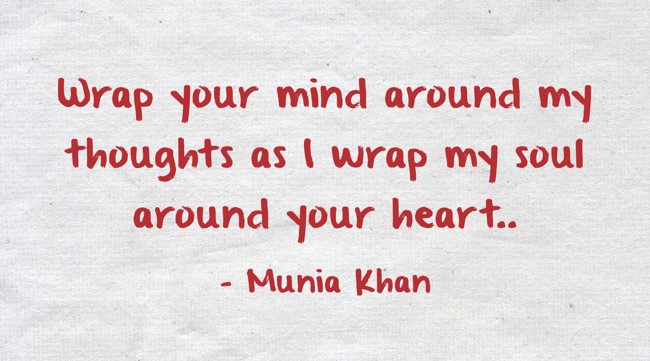 Wrap your mind around my
thoughts as I wrap my soul
around your heart..
- Munia Khan